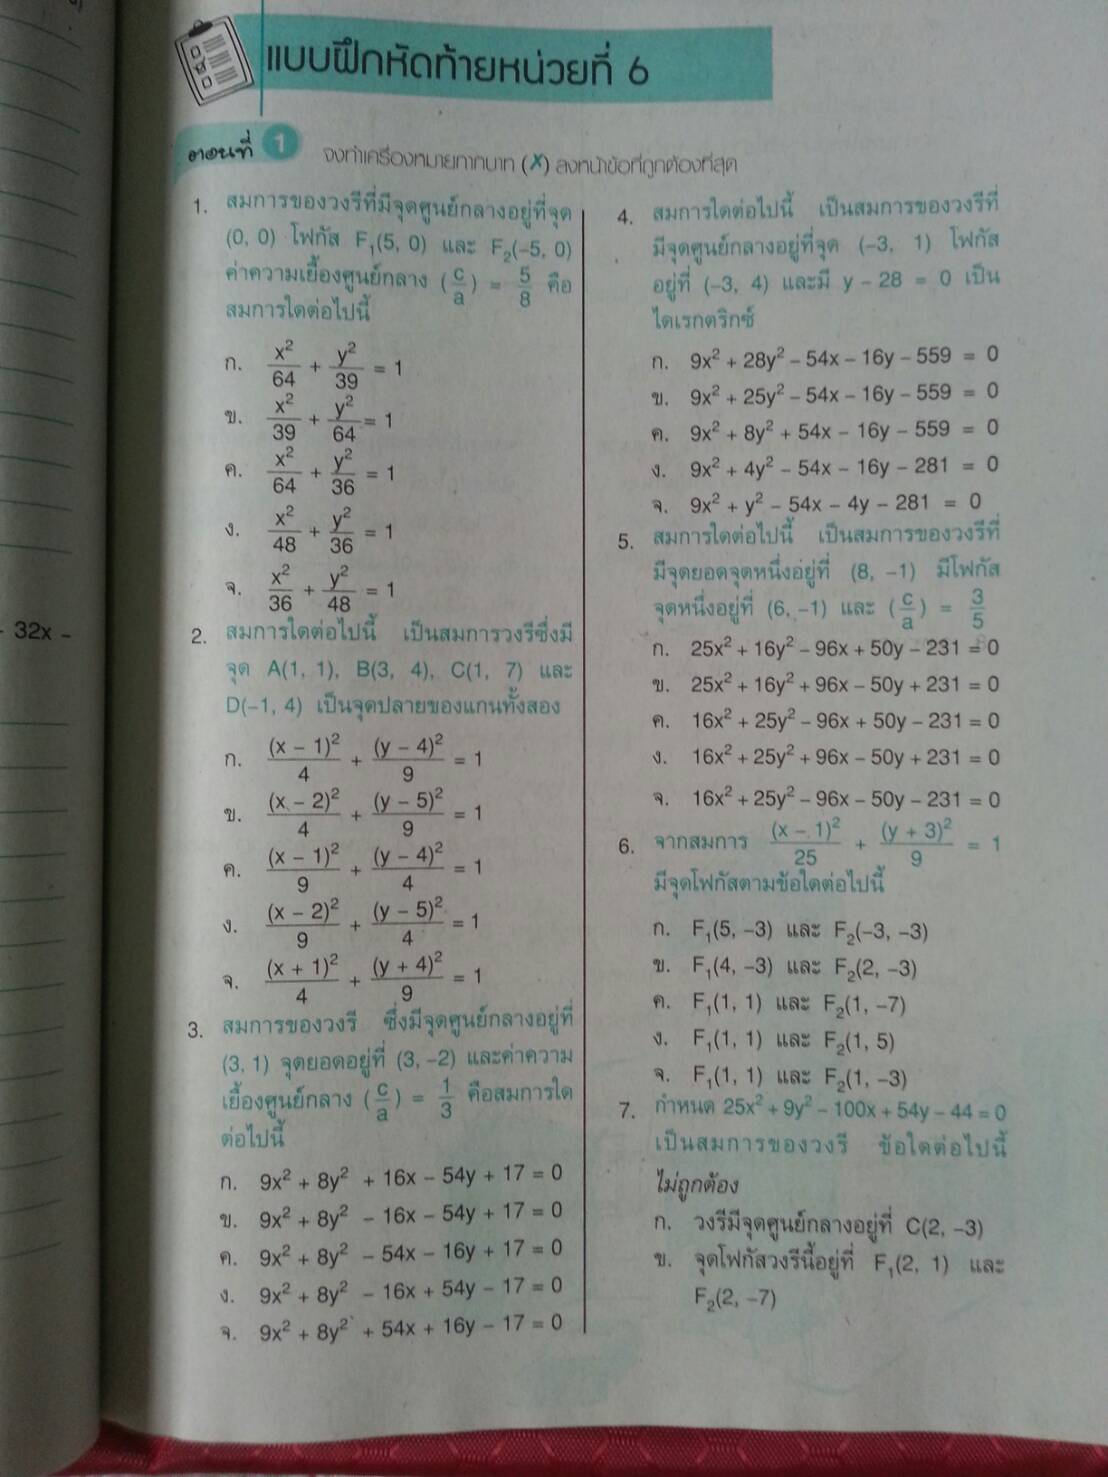 - 32x -
แบบฝึกหัดท้ายหน่วยที่ 6
ตอนที่ 1 จงทำเครื่องหมายกากบาท (✗) ลงหน้าข้อที่ถูกต้องที่สุด
1. สมการของวงรีที่มีจุดศูนย์กลางอยู่ที่จุด
(0, 0) โฟกัส F₁(5, 0) และ F₂(-5, 0)
ค่าความเยื้องศูนย์กลาง (c/a) = 5/8 คือ
สมการใดต่อไปนี้
ก. x²/64 + y²/39 = 1
ข. x²/39 + y²/64 = 1
ค. x²/64 + y²/36 = 1
ง. x²/48 + y²/36 = 1
จ. x²/36 + y²/48 = 1
2. สมการใดต่อไปนี้ เป็นสมการวงรีซึ่งมี
จุด A(1, 1), B(3, 4), C(1, 7) และ
D(-1, 4) เป็นจุดปลายของแกนทั้งสอง
ก. (x - 1)²/4 + (y - 4)²/9 = 1
ข. (x - 2)²/4 + (y - 5)²/9 = 1
ค. (x - 1)²/9 + (y - 4)²/4 = 1
ง. (x - 2)²/9 + (y - 5)²/4 = 1
จ. (x + 1)²/4 + (y + 4)²/9 = 1
3. สมการของวงรี ซึ่งมีจุดศูนย์กลางอยู่ที่
(3, 1) จุดยอดอยู่ที่ (3, -2) และค่าความ
เยื้องศูนย์กลาง (c/a) = 1/3 คือสมการใด
ต่อไปนี้
ก. 9x² + 8y² + 16x - 54y + 17 = 0
ข. 9x² + 8y² - 16x - 54y + 17 = 0
ค. 9x² + 8y² - 54x - 16y + 17 = 0
ง. 9x² + 8y² - 16x + 54y - 17 = 0
จ. 9x² + 8y² + 54x + 16y - 17 = 0
4. สมการใดต่อไปนี้ เป็นสมการของวงรีที่
มีจุดศูนย์กลางอยู่ที่จุด (-3, 1) โฟกัส
อยู่ที่ (-3, 4) และมี y - 28 = 0 เป็น
ไดเรกตริกซ์
ก. 9x² + 28y² - 54x - 16y - 559 = 0
ข. 9x² + 25y² - 54x - 16y - 559 = 0
ค. 9x² + 8y² + 54x - 16y - 559 = 0
ง. 9x² + 4y² - 54x - 16y - 281 = 0
จ. 9x² + y² - 54x - 4y - 281 = 0
5. สมการใดต่อไปนี้ เป็นสมการของวงรีที่
มีจุดยอดจุดหนึ่งอยู่ที่ (8, -1) มีโฟกัส
จุดหนึ่งอยู่ที่ (6, -1) และ (c/a) = 3/5
ก. 25x² + 16y² - 96x + 50y - 231 = 0
ข. 25x² + 16y² + 96x - 50y + 231 = 0
ค. 16x² + 25y² - 96x + 50y - 231 = 0
ง. 16x² + 25y² + 96x - 50y + 231 = 0
จ. 16x² + 25y² - 96x - 50y - 231 = 0
6. จากสมการ (x - 1)²/25 + (y + 3)²/9 = 1
มีจุดโฟกัสตามข้อใดต่อไปนี้
ก. F₁(5, -3) และ F₂(-3, -3)
ข. F₁(4, -3) และ F₂(2, -3)
ค. F₁(1, 1) และ F₂(1, -7)
ง. F₁(1, 1) และ F₂(1, 5)
จ. F₁(1, 1) และ F₂(1, -3)
7. กำหนด 25x² + 9y² - 100x + 54y - 44 = 0
เป็นสมการของวงรี ข้อใดต่อไปนี้
ไม่ถูกต้อง
ก. วงรีมีจุดศูนย์กลางอยู่ที่ C(2, -3)
ข. จุดโฟกัสวงรีนี้อยู่ที่ F₁(2, 1) และ
F₂(2, -7)